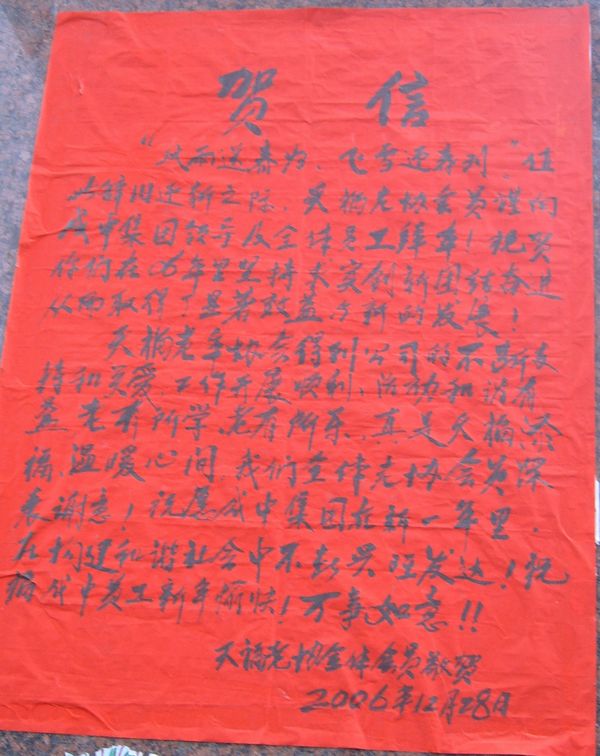 贺信
"风雨送春归，飞雪迎春到"值
此辞旧迎新之际，天福老协会员谨向
成中集团领导及全体员工拜年！祝贺
你们在06年里坚持求实创新团结奋进
从而取得了显著效益与新的发展！
天福老年协会得到公司的不断支
持和关爱，工作开展顺利，活动和谐有
益，老有所学、老有所乐，真是天福添
福、温暖心间，我们全体老协会员深
表谢意！祝愿成中集团在新一年里，
在构建和谐社会中不断兴旺发达！祝
福成中员工新年愉快！万事如意！！
天福老协全体会员敬贺
2006年12月28日